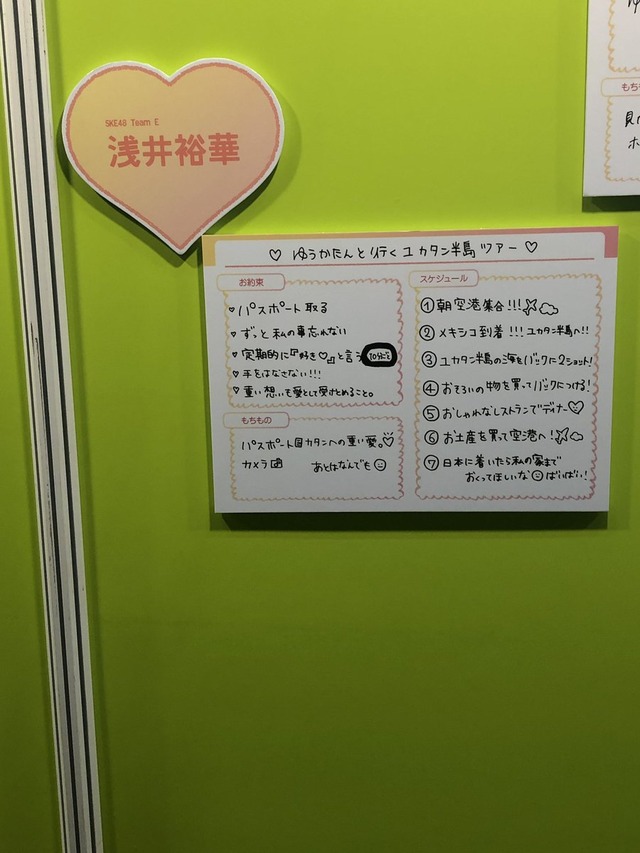 SKE48 Team E
浅井裕華
♡ ゆうかたんと行くユカタン半島ツアー ♡
お約束
♥ パスポート取る
♥ ずっと私の事忘れない
♥ 定期的に『好き♡』と言う 10分ごと
♥ 手をはなさない!!!
♥ 重い想いも愛として受けとめること。
もちもの
パスポート カタンへの重い愛。♡
カメラ あとはなんでも☺
スケジュール
①朝空港集合!!!
②メキシコ到着!!! ユカタン半島へ!!
③ユカタン半島の海をバックに2ショット!
④おそろいの物を買ってバックにつける!
⑤おしゃれなレストランでディナー
⑥お土産を買って空港へ!
⑦日本に着いたら私の家まで
おくってほしいな☺ばいばい!
もち